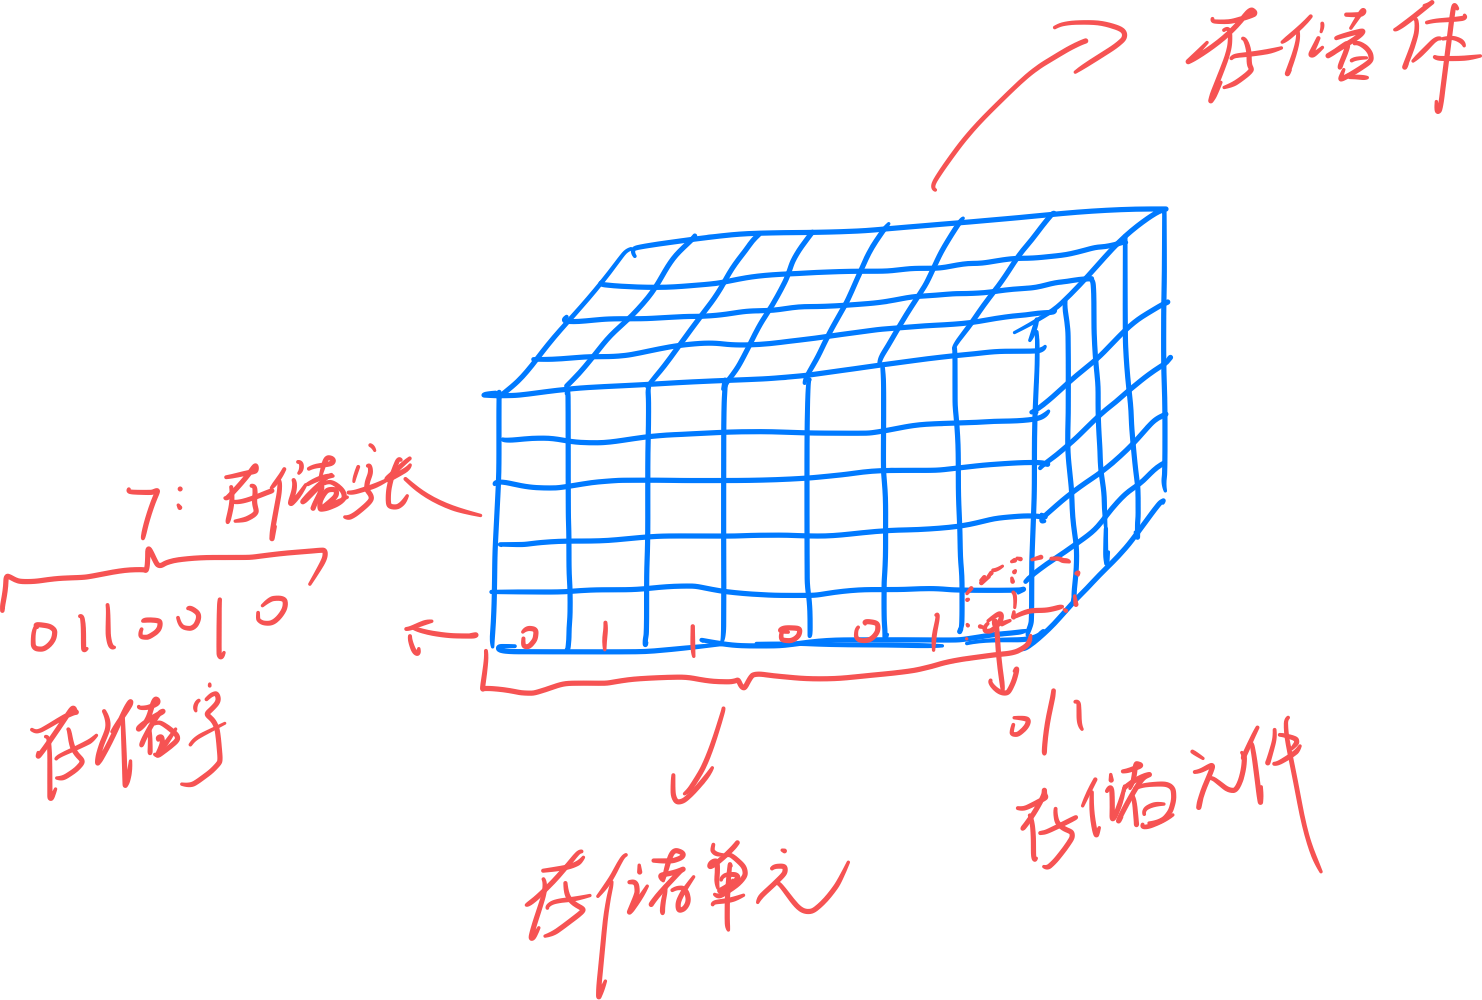 存储体
7: 存储字长
0110010
0 1 1 0 0 1
存储字
0/1
存储元件
存储单元